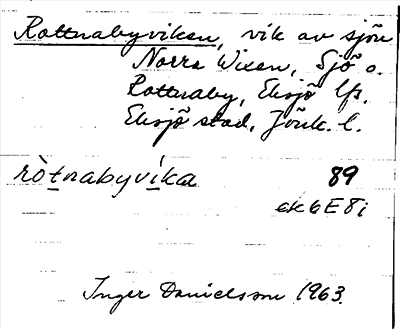 Rottnabyviken, vik av sjön
Norra Wixen, Sjö o.
Rottnaby, Eksjö lfs.
Eksjö stad, Jönk. l.
ròtnabyvíka 89
ek 6E 8i
Inger Danielsson 1963.